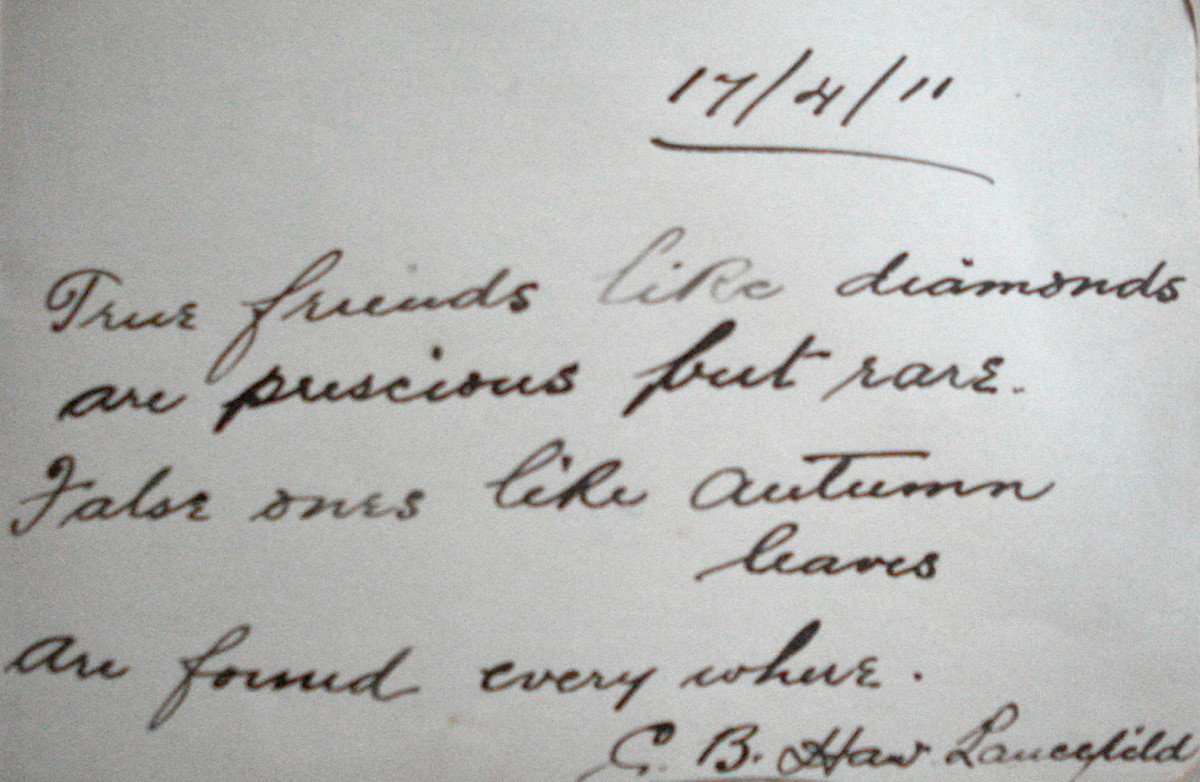 17/4/11
True friends like diamonds
are prescious but rare.
False ones like autumn
leaves
are found every where.
C. B. Haw Lancefield